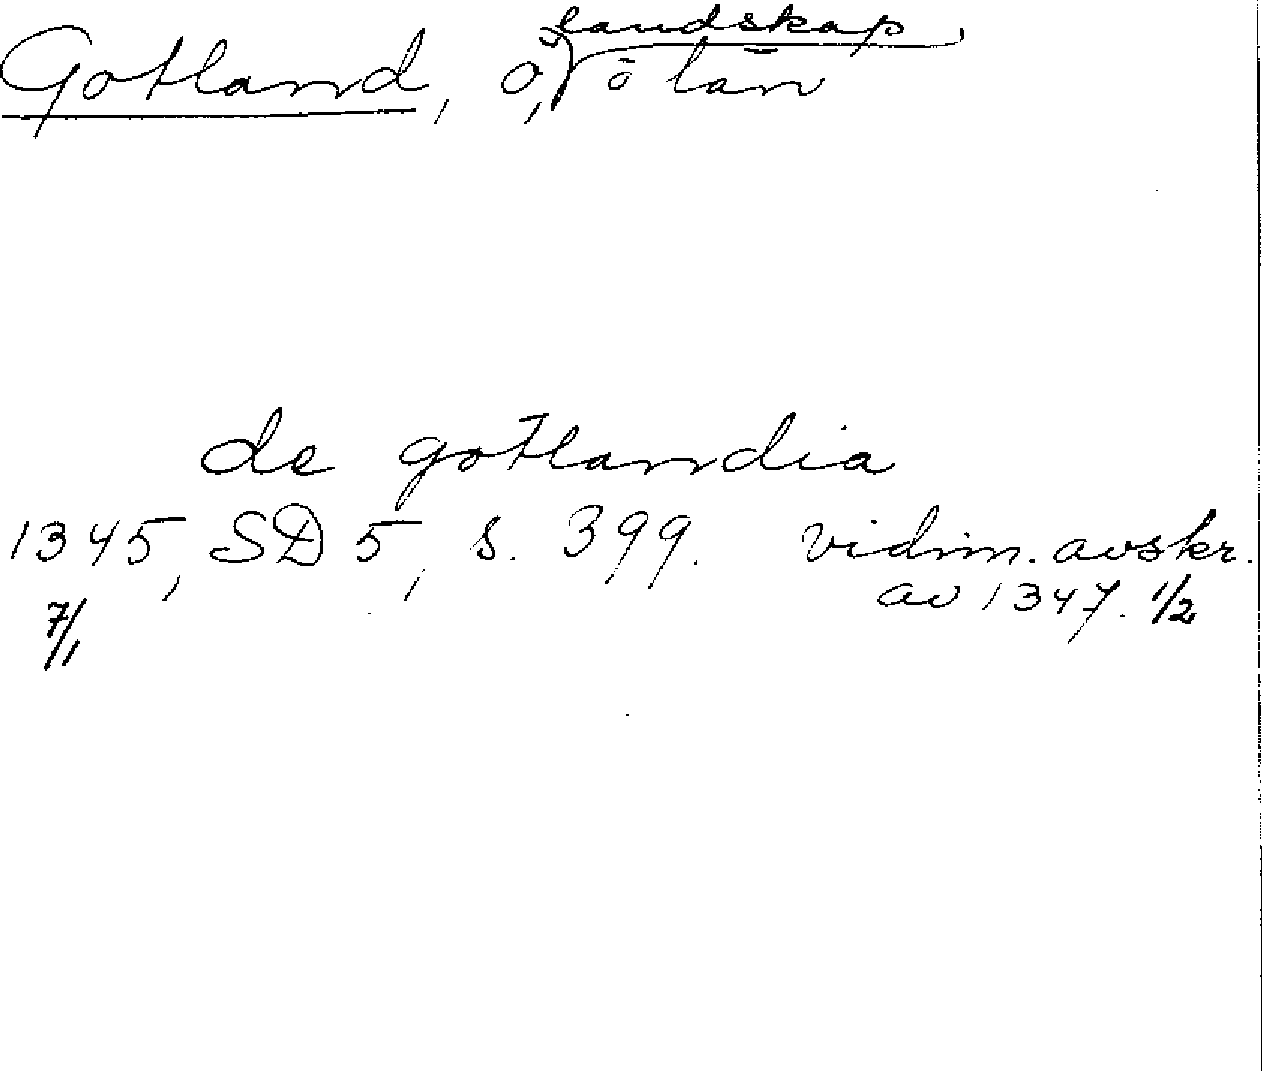 landskap,
Gotland, ö, ō län
de gotlandia
1345, SD 5, s. 399. vidim. avskr.
7/1 av 1347. 1/2